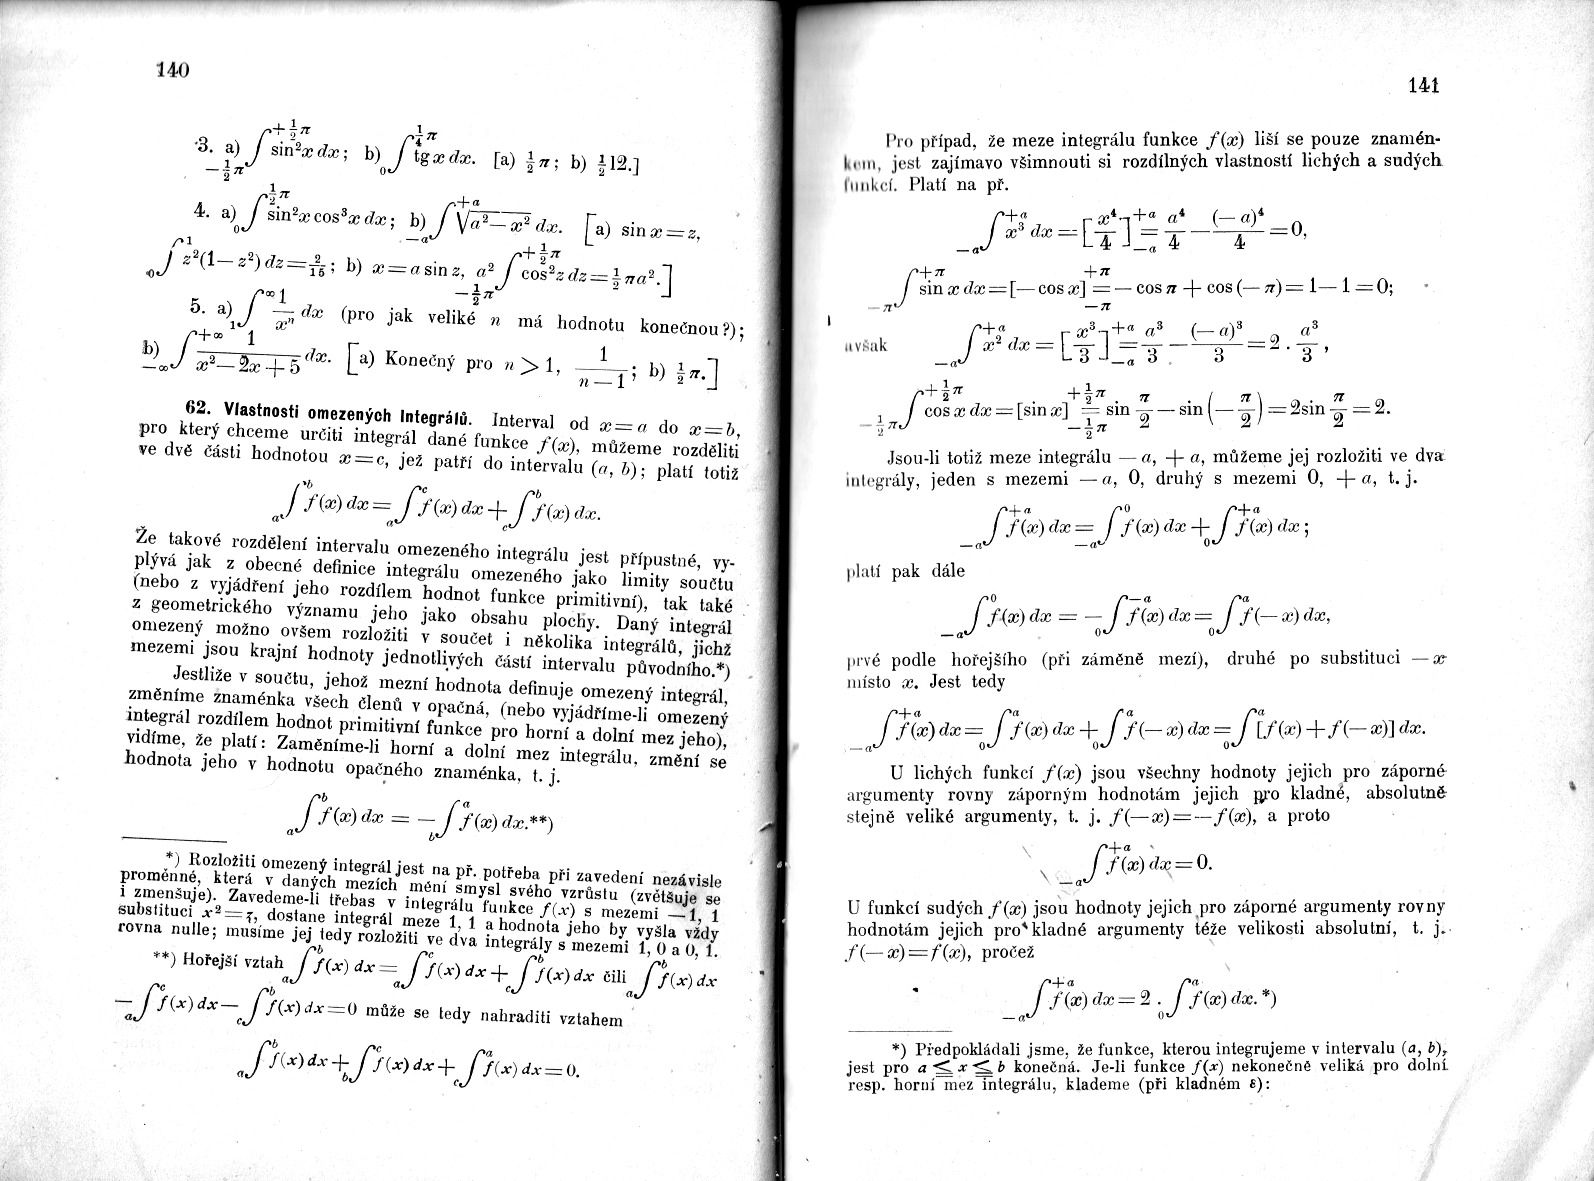 140
3. a) ∫_{−½π}^{+½π} sin²x dx; b) ∫_0^{¼π} tg x dx. [a) ½π; b) ½l2.]
4. a) ∫_0^{½π} sin²x cos³x dx; b) ∫_{−a}^{+a} √(a²−x²) dx. [a) sin x = z,
∫_0^1 z²(1−z²) dz = 2/15; b) x = a sin z, a² ∫_{−½π}^{+½π} cos²z dz = ½πa².]
5. a) ∫_1^∞ 1/xⁿ dx (pro jak veliké n má hodnotu konečnou?);
b) ∫_{−∞}^{+∞} 1/(x²−2x+5) dx. [a) Konečný pro n > 1, 1/(n−1); b) ½π.]
62. Vlastnosti omezených integrálů. Interval od x = a do x = b,
pro který chceme určiti integrál dané funkce f(x), můžeme rozděliti
ve dvě části hodnotou x = c, jež patří do intervalu (a, b); platí totiž
∫_a^b f(x) dx = ∫_a^c f(x) dx + ∫_c^b f(x) dx.
Že takové rozdělení intervalu omezeného integrálu jest přípustné, vy-
plývá jak z obecné definice integrálu omezeného jako limity součtu
(nebo z vyjádření jeho rozdílem hodnot funkce primitivní), tak také
z geometrického významu jeho jako obsahu plochy. Daný integrál
omezený možno ovšem rozložiti v součet i několika integrálů, jichž
mezemi jsou krajní hodnoty jednotlivých částí intervalu původního.*)
Jestliže v součtu, jehož mezní hodnota definuje omezený integrál,
změníme znaménka všech členů v opačná, (nebo vyjádříme-li omezený
integrál rozdílem hodnot primitivní funkce pro horní a dolní mez jeho),
vidíme, že platí: Zaměníme-li horní a dolní mez integrálu, změní se
hodnota jeho v hodnotu opačného znaménka, t. j.
∫_a^b f(x) dx = − ∫_b^a f(x) dx.**)
*) Rozložiti omezený integrál jest na př. potřeba při zavedení nezávisle
proměnné, která v daných mezích mění smysl svého vzrůstu (zvětšuje se
i zmenšuje). Zavedeme-li třebas v integrálu funkce f(x) s mezemi −1, 1
substituci x² = z, dostane integrál meze 1, 1 a hodnota jeho by vyšla vždy
rovna nulle; musíme jej tedy rozložiti ve dva integrály s mezemi 1, 0 a 0, 1.
**) Hořejší vztah ∫_a^b f(x) dx = ∫_a^c f(x) dx + ∫_c^b f(x) dx čili ∫_a^b f(x) dx
− ∫_a^c f(x) dx − ∫_c^b f(x) dx = 0 může se tedy nahraditi vztahem
∫_a^b f(x) dx + ∫_b^c f(x) dx + ∫_c^a f(x) dx = 0.
141
Pro případ, že meze integrálu funkce f(x) liší se pouze znamén-
kem, jest zajímavo všimnouti si rozdílných vlastností lichých a sudých
funkcí. Platí na př.
∫_{−a}^{+a} x³ dx = [x⁴/4]_{−a}^{+a} = a⁴/4 − (−a)⁴/4 = 0,
∫_{−π}^{+π} sin x dx = [−cos x]_{−π}^{+π} = − cos π + cos (−π) = 1 − 1 = 0;
avšak ∫_{−a}^{+a} x² dx = [x³/3]_{−a}^{+a} = a³/3 − (−a)³/3 = 2 . a³/3,
∫_{−½π}^{+½π} cos x dx = [sin x]_{−½π}^{+½π} = sin π/2 − sin (−π/2) = 2 sin π/2 = 2.
Jsou-li totiž meze integrálu −a, +a, můžeme jej rozložiti ve dva
integrály, jeden s mezemi −a, 0, druhý s mezemi 0, +a, t. j.
∫_{−a}^{+a} f(x) dx = ∫_{−a}^0 f(x) dx + ∫_0^{+a} f(x) dx;
platí pak dále
∫_{−a}^0 f(x) dx = − ∫_0^{−a} f(x) dx = ∫_0^a f(−x) dx,
prvé podle hořejšího (při záměně mezí), druhé po substituci −x
místo x. Jest tedy
∫_{−a}^{+a} f(x) dx = ∫_0^a f(x) dx + ∫_0^a f(−x) dx = ∫_0^a [f(x) + f(−x)] dx.
U lichých funkcí f(x) jsou všechny hodnoty jejich pro záporné
argumenty rovny záporným hodnotám jejich pro kladné, absolutně
stejně veliké argumenty, t. j. f(−x) = −f(x), a proto
∫_{−a}^{+a} f(x) dx = 0.
U funkcí sudých f(x) jsou hodnoty jejich pro záporné argumenty rovny
hodnotám jejich pro kladné argumenty téže velikosti absolutní, t. j.
f(−x) = f(x), pročež
∫_{−a}^{+a} f(x) dx = 2 . ∫_0^a f(x) dx.*)
*) Předpokládali jsme, že funkce, kterou integrujeme v intervalu (a, b),
jest pro a ≦ x ≦ b konečná. Je-li funkce f(x) nekonečně veliká pro dolní
resp. horní mez integrálu, klademe (při kladném ε):